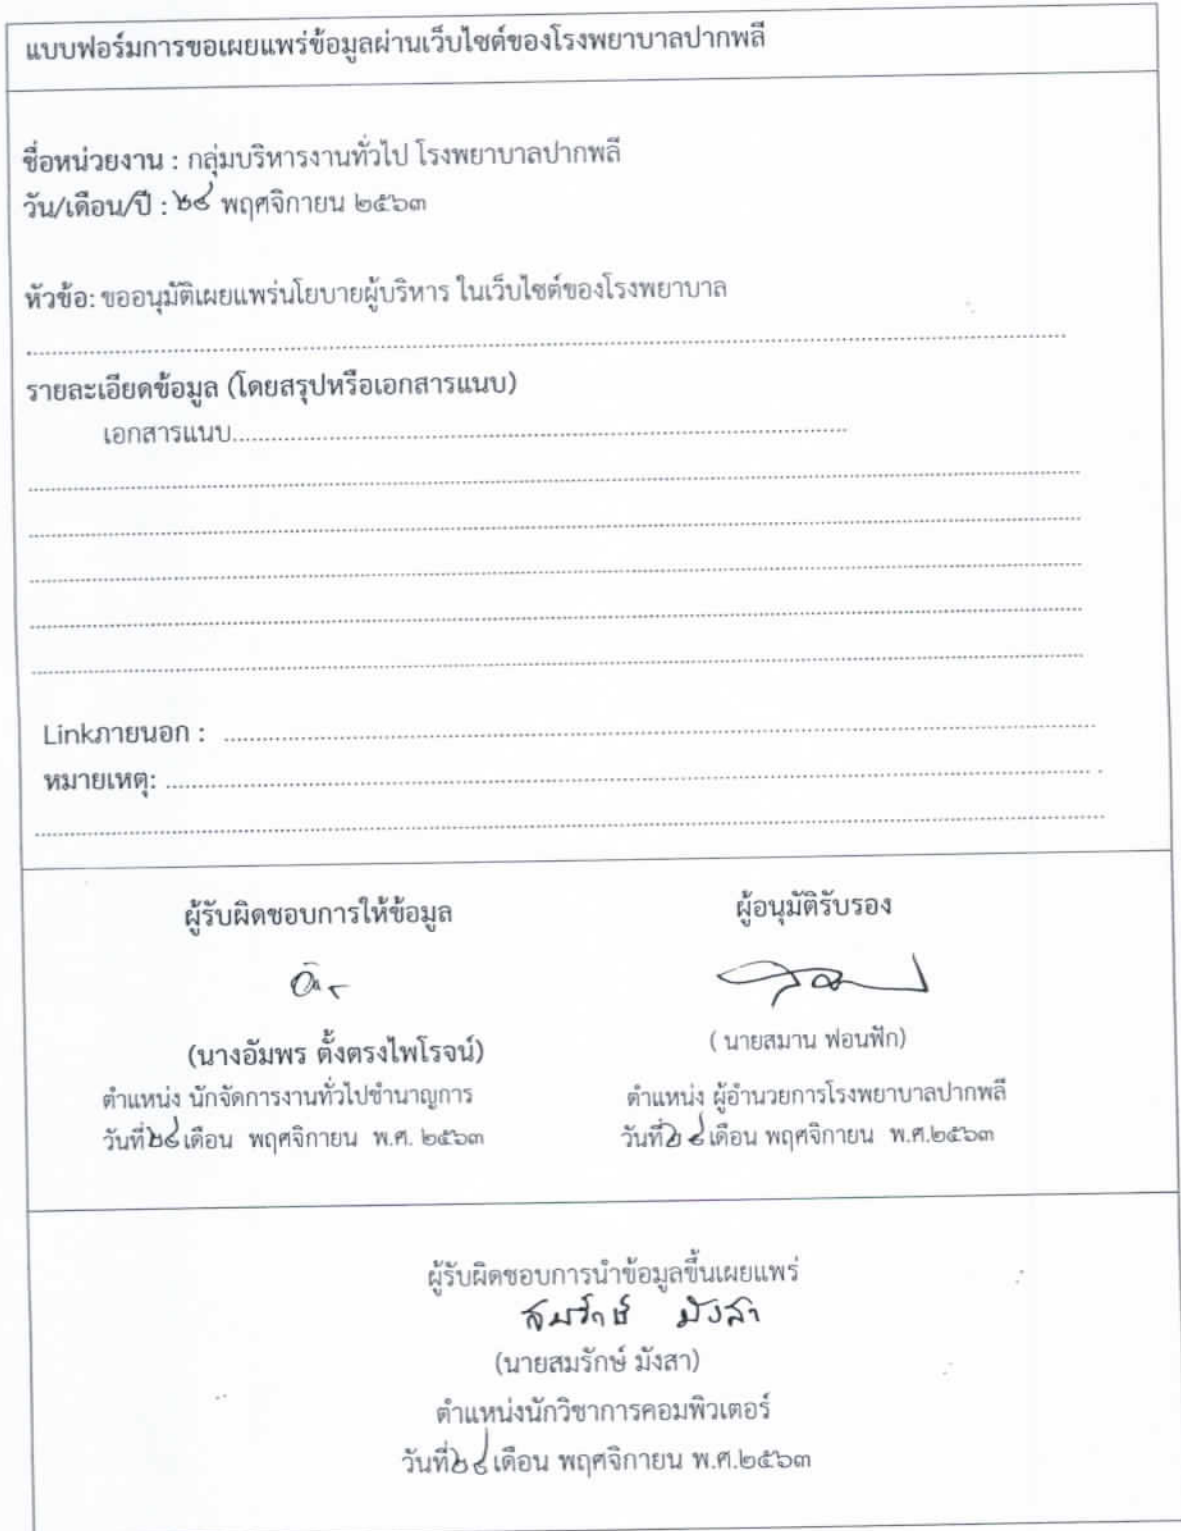 แบบฟอร์มการขอเผยแพร่ข้อมูลผ่านเว็บไซต์ของโรงพยาบาลปากพลี
ชื่อหน่วยงาน : กลุ่มบริหารงานทั่วไป โรงพยาบาลปากพลี
วัน/เดือน/ปี : พฤศจิกายน ๒๕๖๓
หัวข้อ: ขออนุมัติเผยแพร่นโยบายผู้บริหาร ในเว็บไซต์ของโรงพยาบาล
รายละเอียดข้อมูล (โดยสรุปหรือเอกสารแนบ)
เอกสารแนบ
Linkภายนอก :
หมายเหตุ:
ผู้รับผิดชอบการให้ข้อมูล
(นางอัมพร ตั้งตรงไพโรจน์)
ตำแหน่ง นักจัดการงานทั่วไปชำนาญการ
วันที่ เดือน พฤศจิกายน พ.ศ. ๒๕๖๓
ผู้อนุมัติรับรอง
( นายสมาน ฟอนฟัก)
ตำแหน่ง ผู้อำนวยการโรงพยาบาลปากพลี
วันที่ เดือน พฤศจิกายน พ.ศ.๒๕๖๓
ผู้รับผิดชอบการนำข้อมูลขึ้นเผยแพร่
สมรักษ์ มังสา
(นายสมรักษ์ มังสา)
ตำแหน่งนักวิชาการคอมพิวเตอร์
วันที่ เดือน พฤศจิกายน พ.ศ.๒๕๖๓